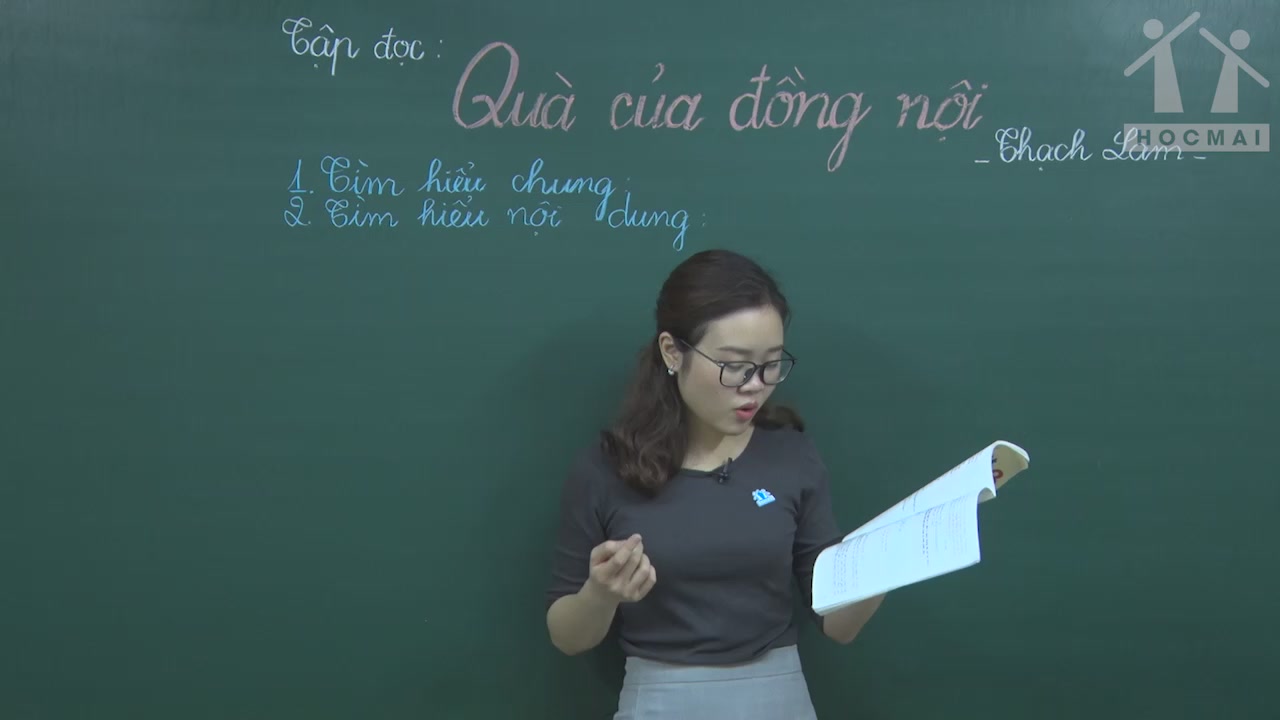 Tập đọc:
Quà của đồng nội
- Thạch Lam -
1. Tìm hiểu chung:
2. Tìm hiểu nội dung:
HOCMAI